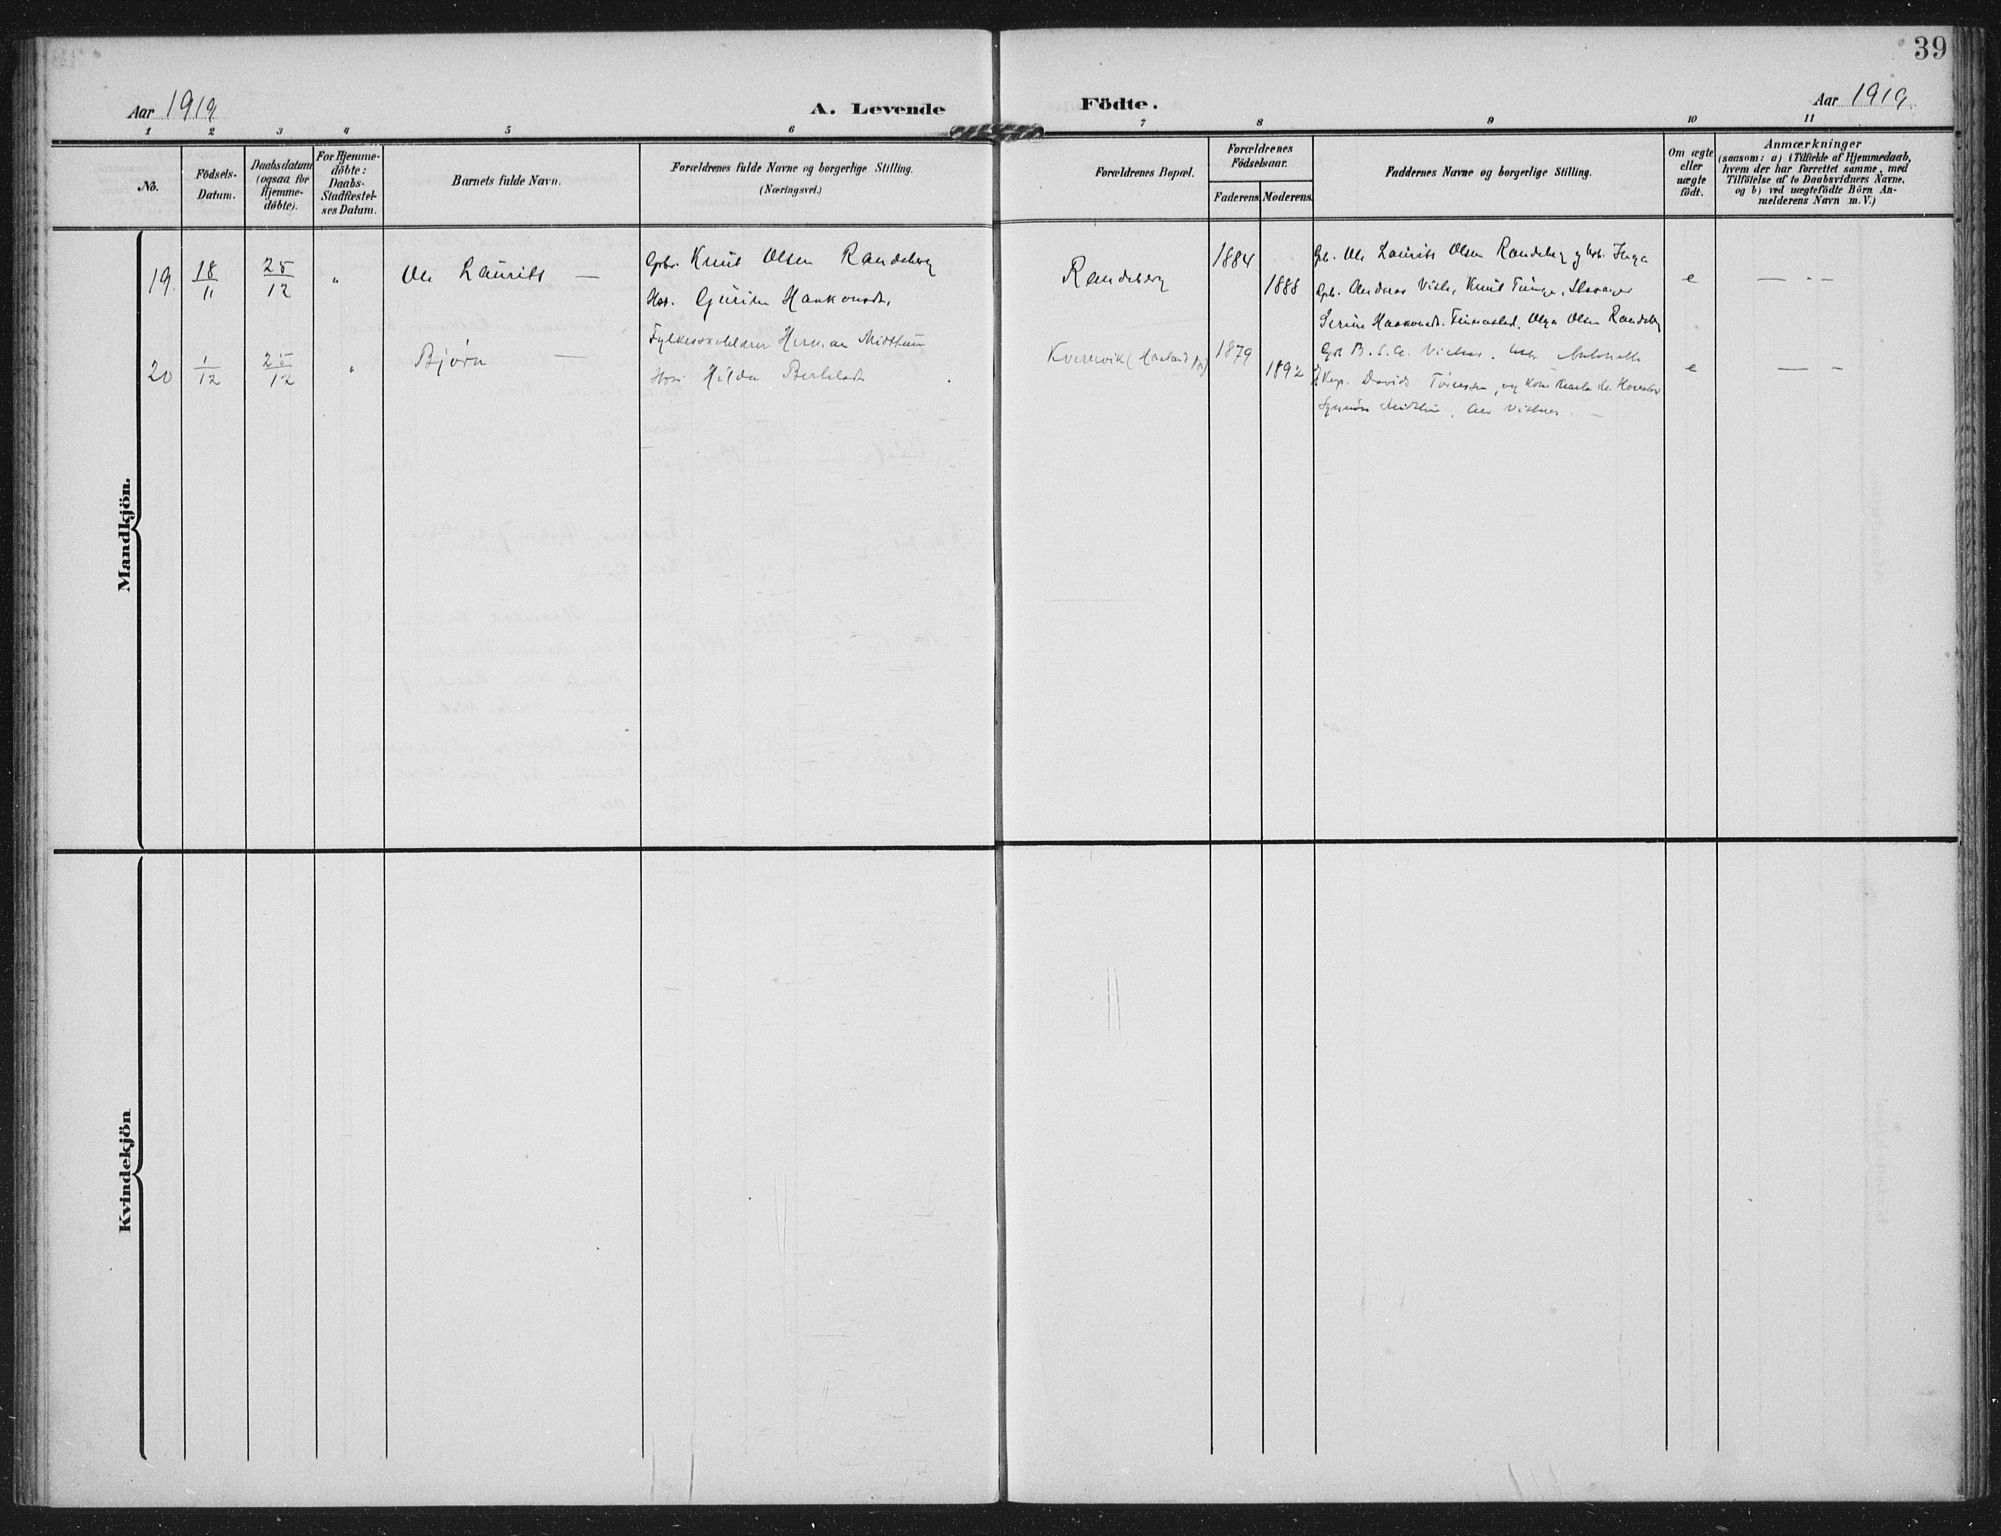 39
Aar 1919
A. Levende
Födte.
Aar 1919.
1 2 3 4 5 6 7 8 9 10 11
No.
Födsels-
Datum.
Daabsdatum
(ogsaa for
Hjemme-
döbte).
For Hjemme-
döbte:
Daabs-
Stadfæstel-
ses Datum.
Barnets fulde Navn.
Forældrenes fulde Navne og borgerlige Stilling.
(Næringsvei.)
Forældrenes Bopæl.
Forældrenes
Födselsaar.
Faderens
Moderens.
Faddernes Navne og borgerlige Stilling.
Om ægte
eller
uægte
födt.
Anmærkninger
(saasom: a) i Tilfælde af Hjemmedaab,
hvem der har forrettet samme, med
Tilföielse af to Daabsvidners Navne.
og b) ved uægtefödte Börn An-
melderens Navn m. V.)
Mandkjön.
19. 18/11 25/12 " Ole Laurits —
Gbr. Knut Olsen Randeberg
Hos. Gurine Haakonsdt.
Randeberg
1884
1888
Gb. Ole Laurits Olsen Randeberg g hos. Inga
Gb. Andreas Viste, Knut Tunge, Stavanger
Serine Haakonsdt. , Olga Olsen Randeberg
e — " —
20 1/12 25/12 " Bjørn —
Herman Midttun
Hos. Hilda
Kvernevik (Haaland Pr)
1879
1892
B. S. A.
Davids , og
Midttun,
e — " —
Kvindekjön